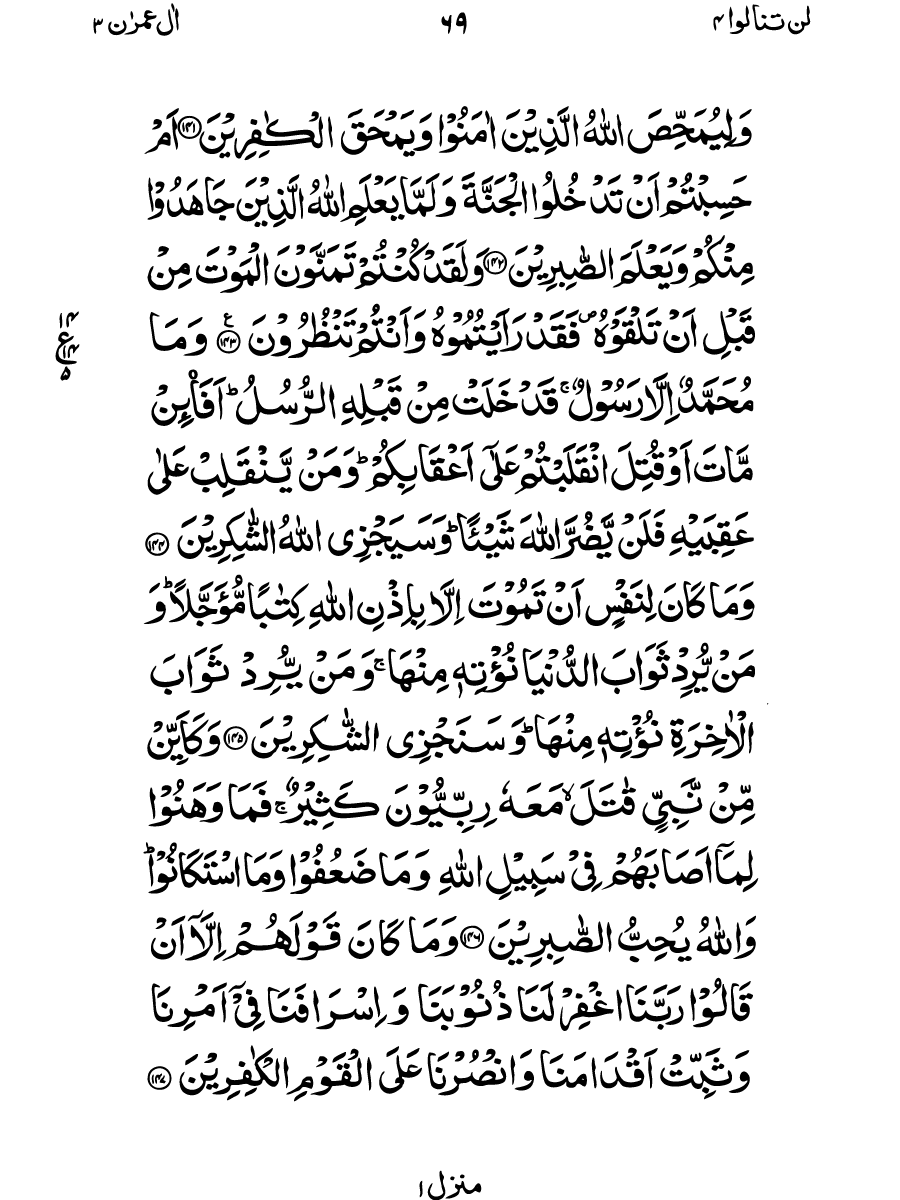 لن تنالوا ۴ ۶۹ اٰل عمرٰن ۳
وَلِیُمَحِّصَ اللّٰهُ الَّذِیْنَ اٰمَنُوْا وَیَمْحَقَ الْكٰفِرِیْنَ ۝۱۴۱ اَمْ
حَسِبْتُمْ اَنْ تَدْخُلُوا الْجَنَّةَ وَلَمَّا یَعْلَمِ اللّٰهُ الَّذِیْنَ جَاهَدُوْا
مِنْكُمْ وَیَعْلَمَ الصّٰبِرِیْنَ ۝۱۴۲ وَلَقَدْ كُنْتُمْ تَمَنَّوْنَ الْمَوْتَ مِنْ
قَبْلِ اَنْ تَلْقَوْهُ ۪ فَقَدْ رَاَیْتُمُوْهُ وَاَنْتُمْ تَنْظُرُوْنَ ۝۱۴۳ ع وَمَا
۱۴ ع ۱۴ ۵
مُحَمَّدٌ اِلَّا رَسُوْلٌ ۚ قَدْ خَلَتْ مِنْ قَبْلِهِ الرُّسُلُ ؕ اَفَا۠ىِٕنْ
مَّاتَ اَوْ قُتِلَ انْقَلَبْتُمْ عَلٰۤی اَعْقَابِكُمْ ؕ وَمَنْ یَّنْقَلِبْ عَلٰی
عَقِبَیْهِ فَلَنْ یَّضُرَّ اللّٰهَ شَیْـًٔا ؕ وَسَیَجْزِی اللّٰهُ الشّٰكِرِیْنَ ۝۱۴۴
وَمَا كَانَ لِنَفْسٍ اَنْ تَمُوْتَ اِلَّا بِاِذْنِ اللّٰهِ كِتٰبًا مُّؤَجَّلًا ؕ وَ
مَنْ یُّرِدْ ثَوَابَ الدُّنْیَا نُؤْتِهٖ مِنْهَا ۚ وَمَنْ یُّرِدْ ثَوَابَ
الْاٰخِرَةِ نُؤْتِهٖ مِنْهَا ؕ وَسَنَجْزِی الشّٰكِرِیْنَ ۝۱۴۵ وَكَاَیِّنْ
مِّنْ نَّبِیٍّ قٰتَلَ ۙ مَعَهٗ رِبِّیُّوْنَ كَثِیْرٌ ۚ فَمَا وَهَنُوْا
لِمَاۤ اَصَابَهُمْ فِیْ سَبِیْلِ اللّٰهِ وَمَا ضَعُفُوْا وَمَا اسْتَكَانُوْا ؕ
وَاللّٰهُ یُحِبُّ الصّٰبِرِیْنَ ۝۱۴۶ وَمَا كَانَ قَوْلَهُمْ اِلَّاۤ اَنْ
قَالُوْا رَبَّنَا اغْفِرْ لَنَا ذُنُوْبَنَا وَاِسْرَافَنَا فِیْۤ اَمْرِنَا
وَثَبِّتْ اَقْدَامَنَا وَانْصُرْنَا عَلَی الْقَوْمِ الْكٰفِرِیْنَ ۝۱۴۷
منزل ۱